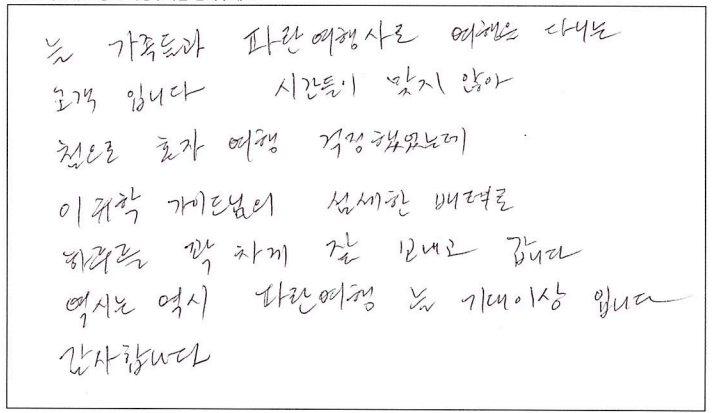 늘 가족들과 파란여행사로 여행을 다니는
고객 입니다 시간들이 맞지 않아
첨으로 혼자 여행 걱정했었는데
이귀학 가이드님의 섬세한 배려로
하루를 꽉 차게 잘 보내고 갑니다
역시는 역시 파란여행 늘 기대이상 입니다
감사합니다